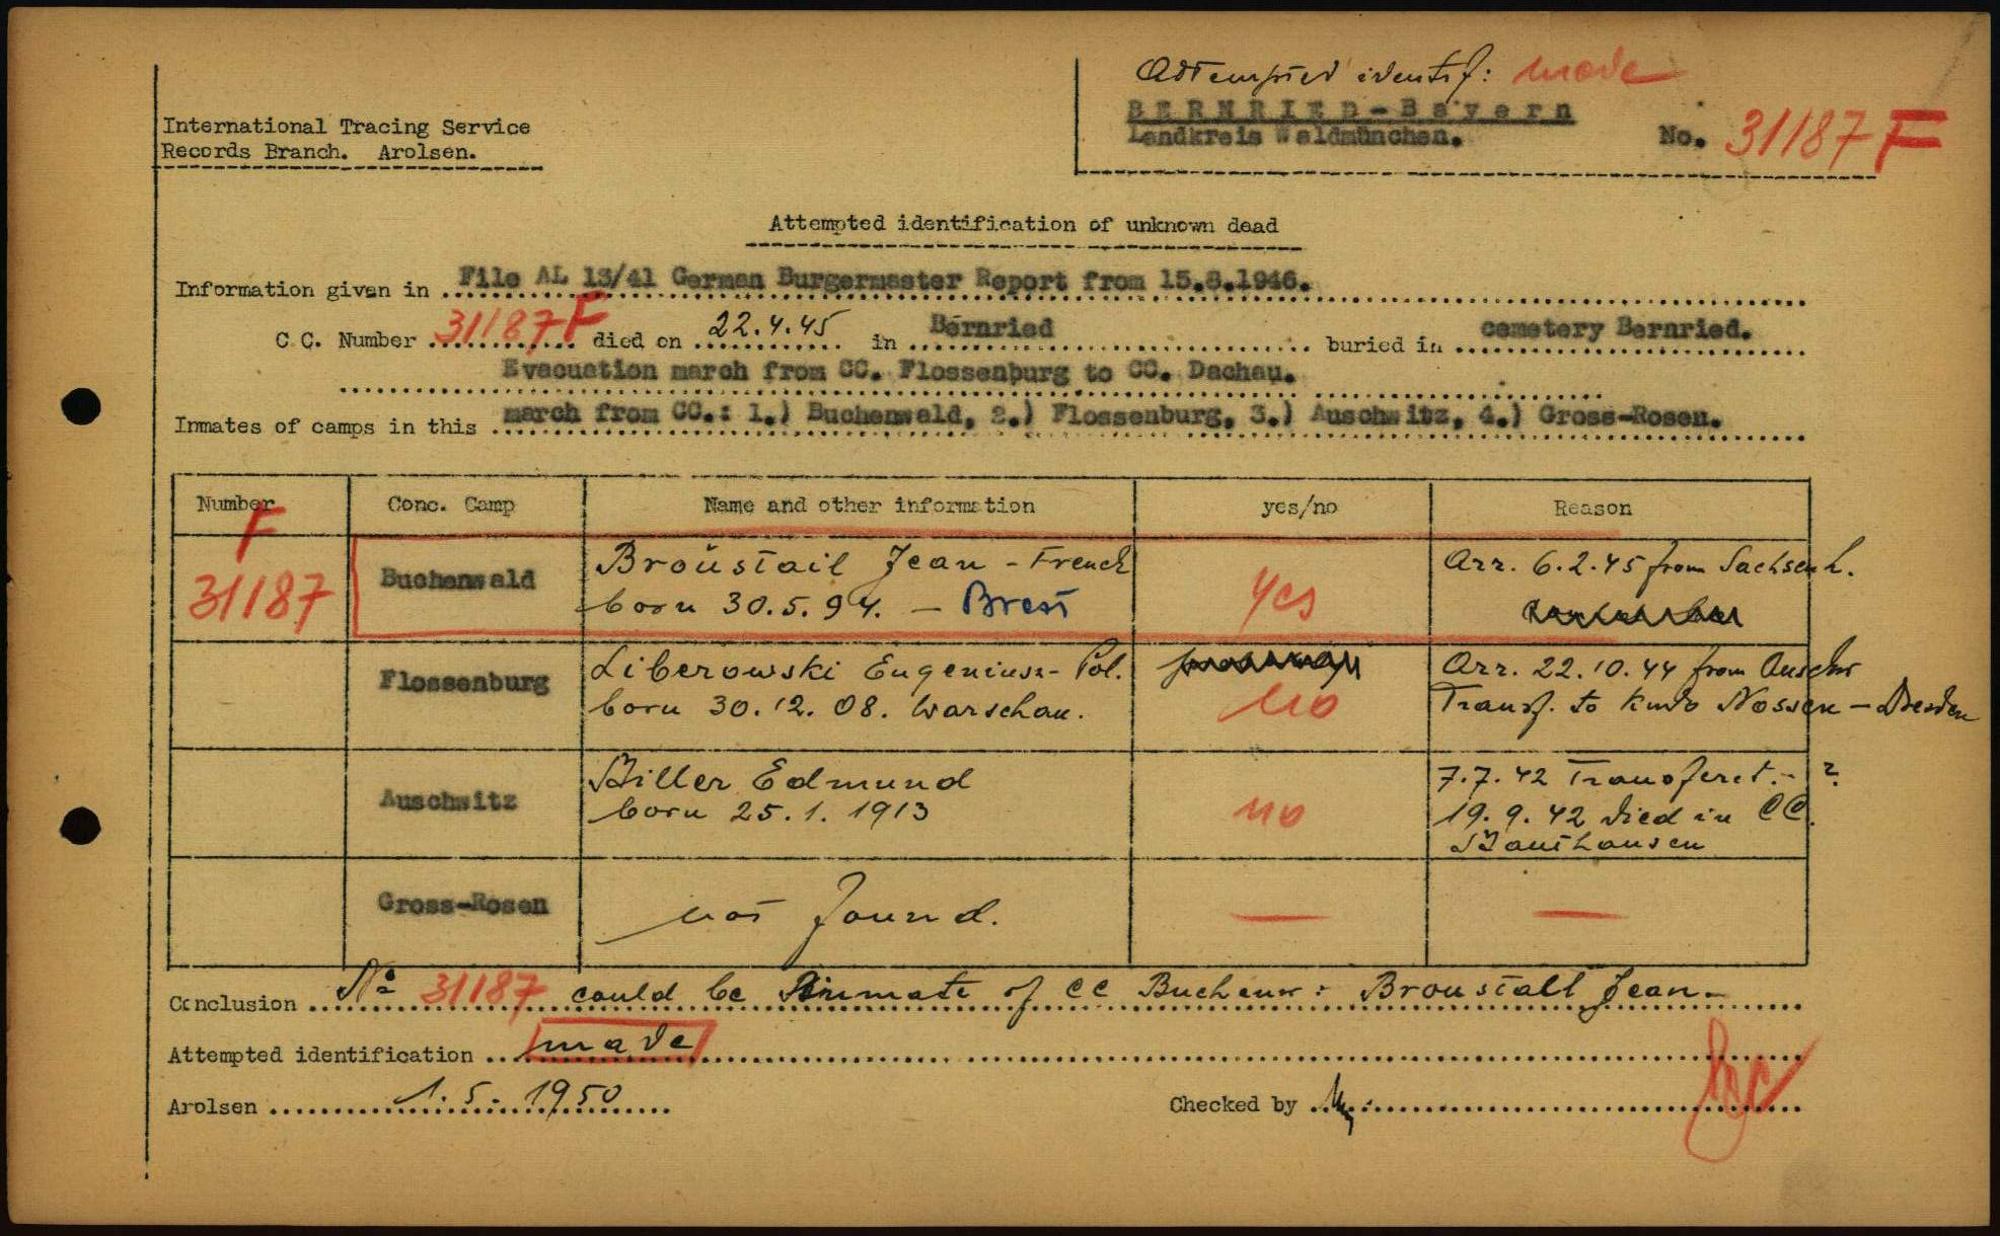 Attempted identif: made
BERNRIED-Bayern
Landkreis Waldmünchen.
No. 31187 F
International Tracing Service
Records Branch. Arolsen.
Attempted identification of unknown dead
Information given in File AL 13/41 German Burgermaster Report from 15.8.1946.
C.C. Number 31187 F died on 22.4.45 in Bernried buried in cemetery Bernried.
Evacuation march from CC. Flossenburg to CC. Dachau.
Inmates of camps in this march from CC.: 1.) Buchenwald, 2.) Flossenburg, 3.) Auschwitz, 4.) Gross-Rosen.
Number Conc. Camp Name and other information yes/no Reason
F
31187 Buchenwald Broustail Jean - French yes Arr. 6.2.45 from Sachsenh.
born 30.5.94. - Brest
Flossenburg Liberowski Eugeniusz - Pol. no Arr. 22.10.44 from Auschw
born 30.12.08. Warschau. Transf. to Kmdo Nossen - Dresden
Auschwitz Biller Edmund no 7.7.42 Transferet. - ?
born 25.1.1913 19.9.42 died in CC.
Mauthausen
Gross-Rosen not found. — —
Conclusion No 31187 could be inmate of CC Buchenw: Broustall Jean.
Attempted identification made
Arolsen 1.5.1950 Checked by